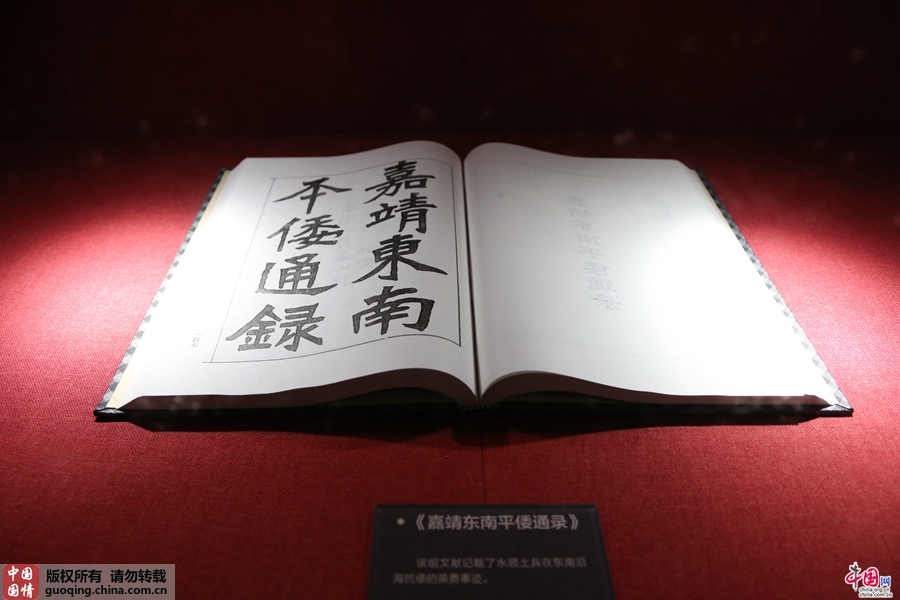 嘉靖東南
平倭通録
• 《嘉靖东南平倭通录》
该组文献记载了永顺土兵在东南沿
海抗倭的英勇事迹。
中国
国情
版权所有 请勿转载
guoqing.china.com.cn
中国网
china.org.cn
china.com.cn